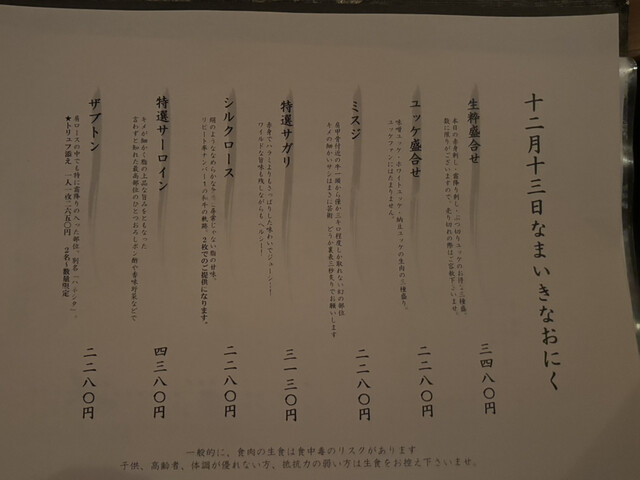 十二月十三日なまいきなおにく
生粋盛合せ
本日の赤身刺し・霜降り刺し・ぶつ切りユッケのお得な三種盛。
数に限りがございますので、売り切れの際はご容赦下さいませ。
三四八〇円
ユッケ盛合せ
味噌ユッケ・ホワイトユッケ・納豆ユッケの生肉の三種盛り。
ユッケファンにはたまりません。
二二八〇円
ミスジ
肩甲骨付近の牛一頭から僅か三キロ程度しか取れない幻の部位
キメの細かいサシはまさに芸術 どうか裏表三秒炙りでお願いします
二二八〇円
特選サガリ
赤身でハラミよりもさっぱりした味わいでジューシー…
ワイルドな旨味も残しながらも ヘルシー！
三一三〇円
シルクロース
絹のようななめらかなサシ、尋常じゃない脂の甘味。
リピート率ナンバー１の和牛の軌跡。２枚でのご提供になります。
二二八〇円
特選サーロイン
キメが細かく脂の上品な旨みをともなった
言わずと知れた最高部位のひとつおろしポン酢や香味野菜などで
四三八〇円
ザブトン
肩ロースの中でも特に霜降りの入った部位、別名「ハネシタ」。
★トリュフ添え 一人一枚二六五〇円 ２名〜数量限定
二二八〇円
一般的に、食肉の生食は食中毒のリスクがあります
子供、高齢者、体調が優れない方、抵抗力の弱い方は生食をお控え下さいませ。